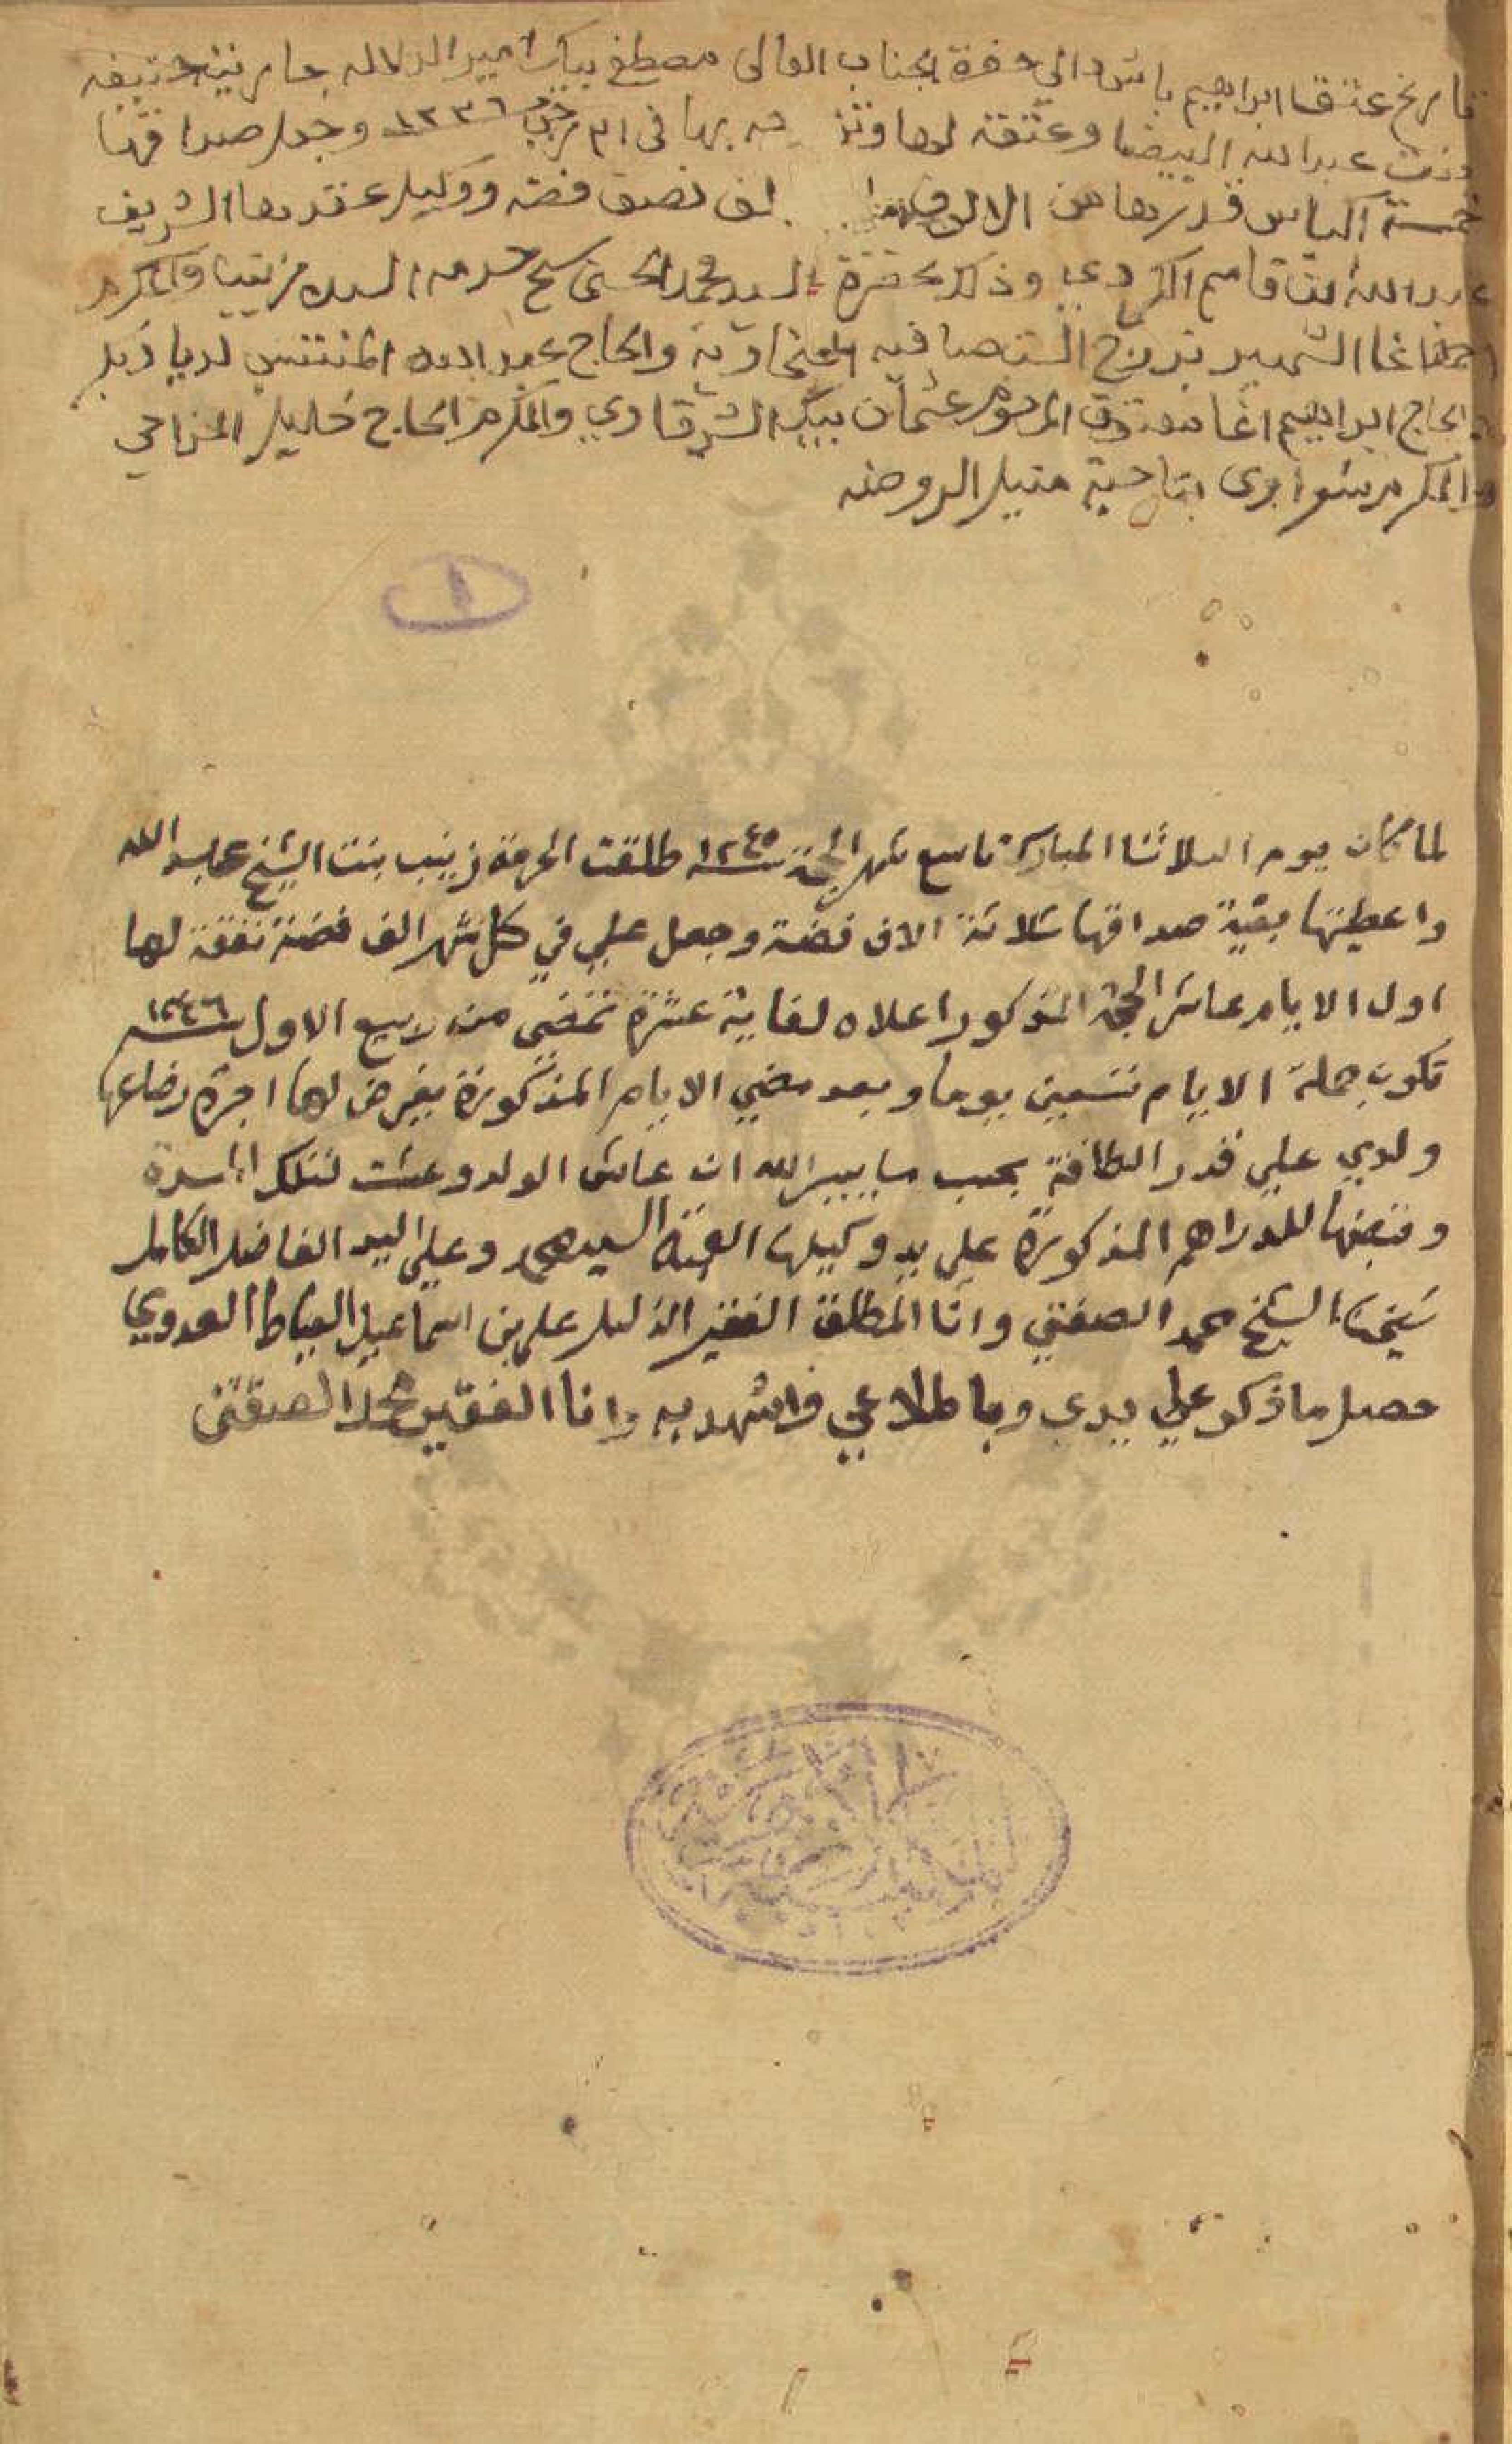 تاريخ عتق ابراهيم باشه الي حضرة الجناب العالى مصطفى بيك امير اللالاله جاريته
بنت عبد الله البيضا وعتقه لها وتزوجه بها فى رجب ١٢٣٦ وجعل صداقها
خمسة اكياس قدرها من الالوف الف نصف فضه ووكيل عقدها الشريف
عبد الله بن قاسم الكردي وذلك بحضرة السيد محمد الحسنى شيخ خدمه السيده زينب والمكرم
اغا الشهير بزوج والحاج عبد الله المنتسب لديار بكر
والحاج ابراهيم اغا معتوق المرحوم عثمان بيك الشرقاوي والمكرم الحاج خليل المزاحي
والمكرم بناحية منيل الروضه
١
لما كان يوم الثلاثا المبارك تاسع شهر الحجة سنة ١٢٤٥ طلقت الحرمة زينب بنت الشيخ عبد الله
واعطيتها بقية صداقها ثلاثة الاف فضة وجعل علي في كل شهر الف فضة نفقة لها
اول الايام عاشر الحجة المذكور اعلاه لغاية عشرة تمضي من ربيع الاول سنة ١٢٤٦
تكون جملة الايام تسعين يوما وبعد مضي الايام المذكورة يفرض لها اجرة رضاعها
ولدي علي قدر الطاقة بحسب ما ييسر الله ان عاش الولد وعشت لتلك المدة
وقبضها للدراهم المذكورة علي يد وكيلها السيد محمد وعلي اليد الفاضل الكامل
شيخنا الشيخ محمد الصفتي وانا المطلق الفقير الذليل علي بن اسماعيل العدوي
حصل ما ذكر علي يدي وباطلاعي واشهد به وانا الفقير محمد الصفتى